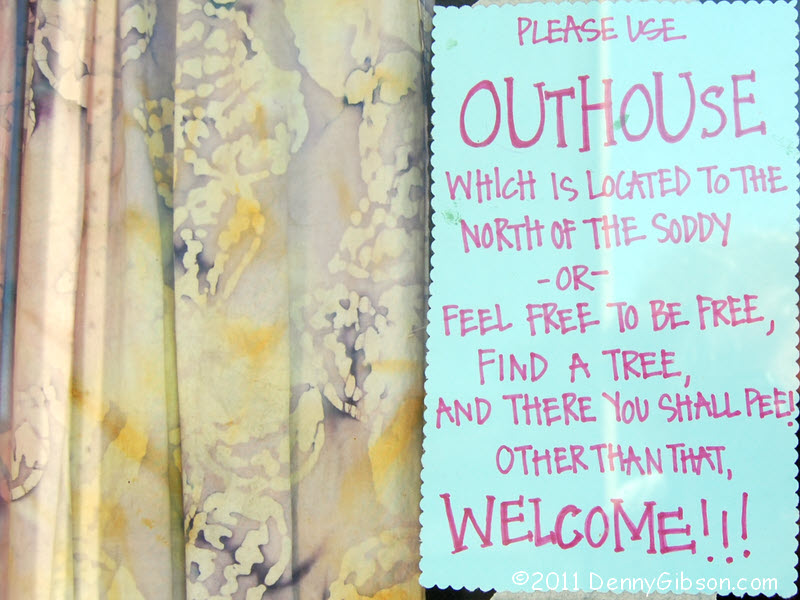 PLEASE USE
OUTHOUSE
WHICH IS LOCATED TO THE
NORTH OF THE SODDY
-OR-
FEEL FREE TO BE FREE,
FIND A TREE,
AND THERE YOU SHALL PEE!
OTHER THAN THAT,
WELCOME!!!
©2011 DennyGibson.com